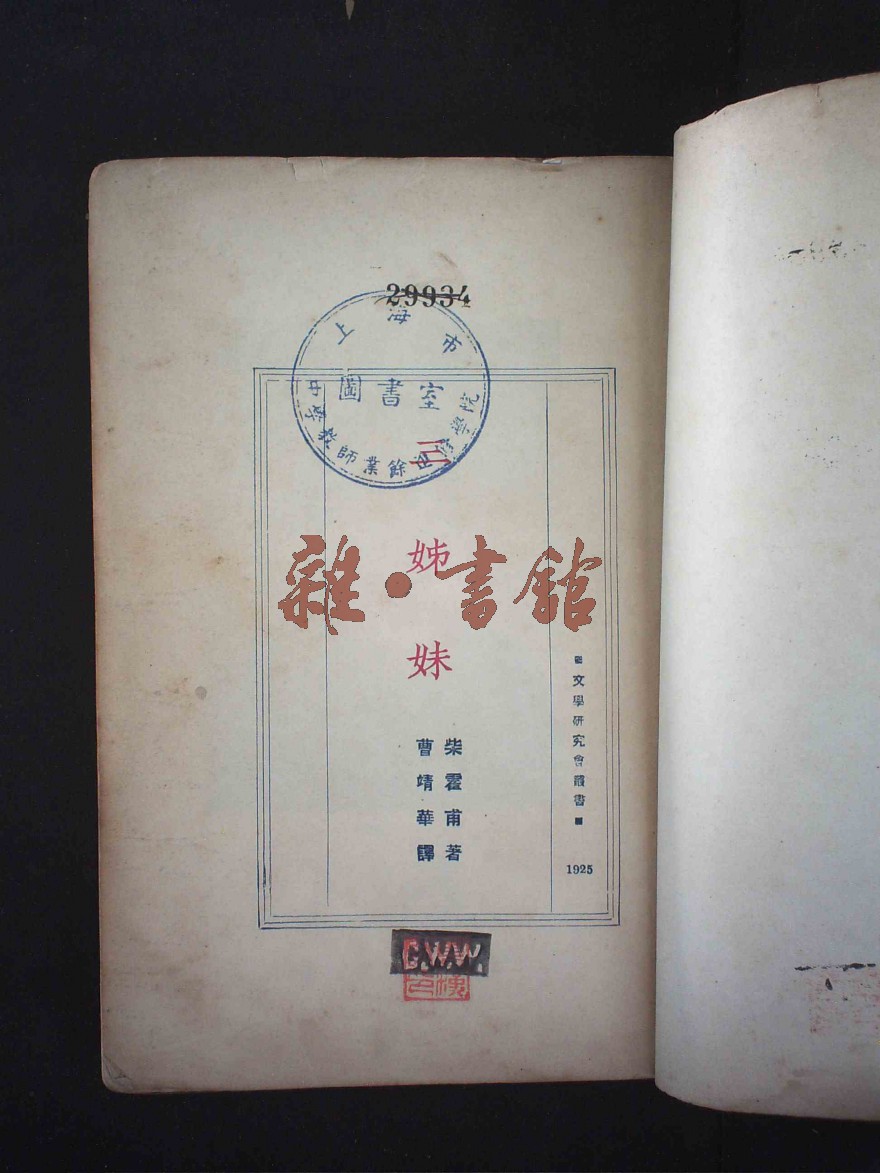 29934
上海市
圖書室
中等敎師業餘進修學院
三
姊
妹
雜·書館
柴霍甫著
曹靖華譯
文學研究會叢書
1925
G.W.W.